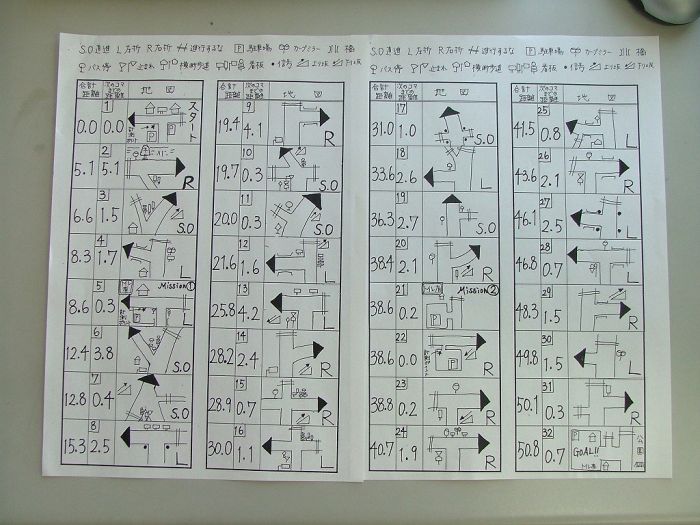 S.O 直進 L 左折 R 右折 进行するな P 駐車場 カーブミラー 橋
バス停 止まれ 横断歩道 看板 信号 上り坂 下り坂
合計距離 次のコマまでの距離 地図
0.0 1 0.0 スタート P P
5.1 2 5.1 R
6.6 3 1.5 S.O
8.3 4 1.7 L
8.6 5 0.3 Mission① P L
12.4 6 3.8 S.O
12.8 7 0.4 S.O
15.3 8 2.5 L
合計距離 次のコマまでの距離 地図
19.4 9 4.1 R
19.7 10 0.3 S.O
20.0 11 0.3 S.O
21.6 12 1.6 L
25.8 13 4.2 L
28.2 14 2.4 R
28.9 15 0.7 R
30.0 16 1.1 L
S.O 直進 L 左折 R 右折 進行するな P 駐車場 カーブミラー 橋
バス停 止まれ 横断歩道 看板 信号 上り坂 下り坂
合計距離 次のコマまでの距離 地図
31.0 17 1.0 S.O
33.6 18 2.6 L
36.3 19 2.7 S.O
38.4 20 2.1 R
38.6 21 0.2 Mission② P
38.6 22 0.0 P R
38.8 23 0.2 R
40.7 24 1.9 R
合計距離 次のコマまでの距離 地図
41.5 25 0.8 L
43.6 26 2.1 R
46.1 27 2.5 L
46.8 28 0.7 L
48.3 29 1.5 R
49.8 30 1.5 L
50.1 31 0.3 R
50.8 32 0.7 P GOAL!! 公園